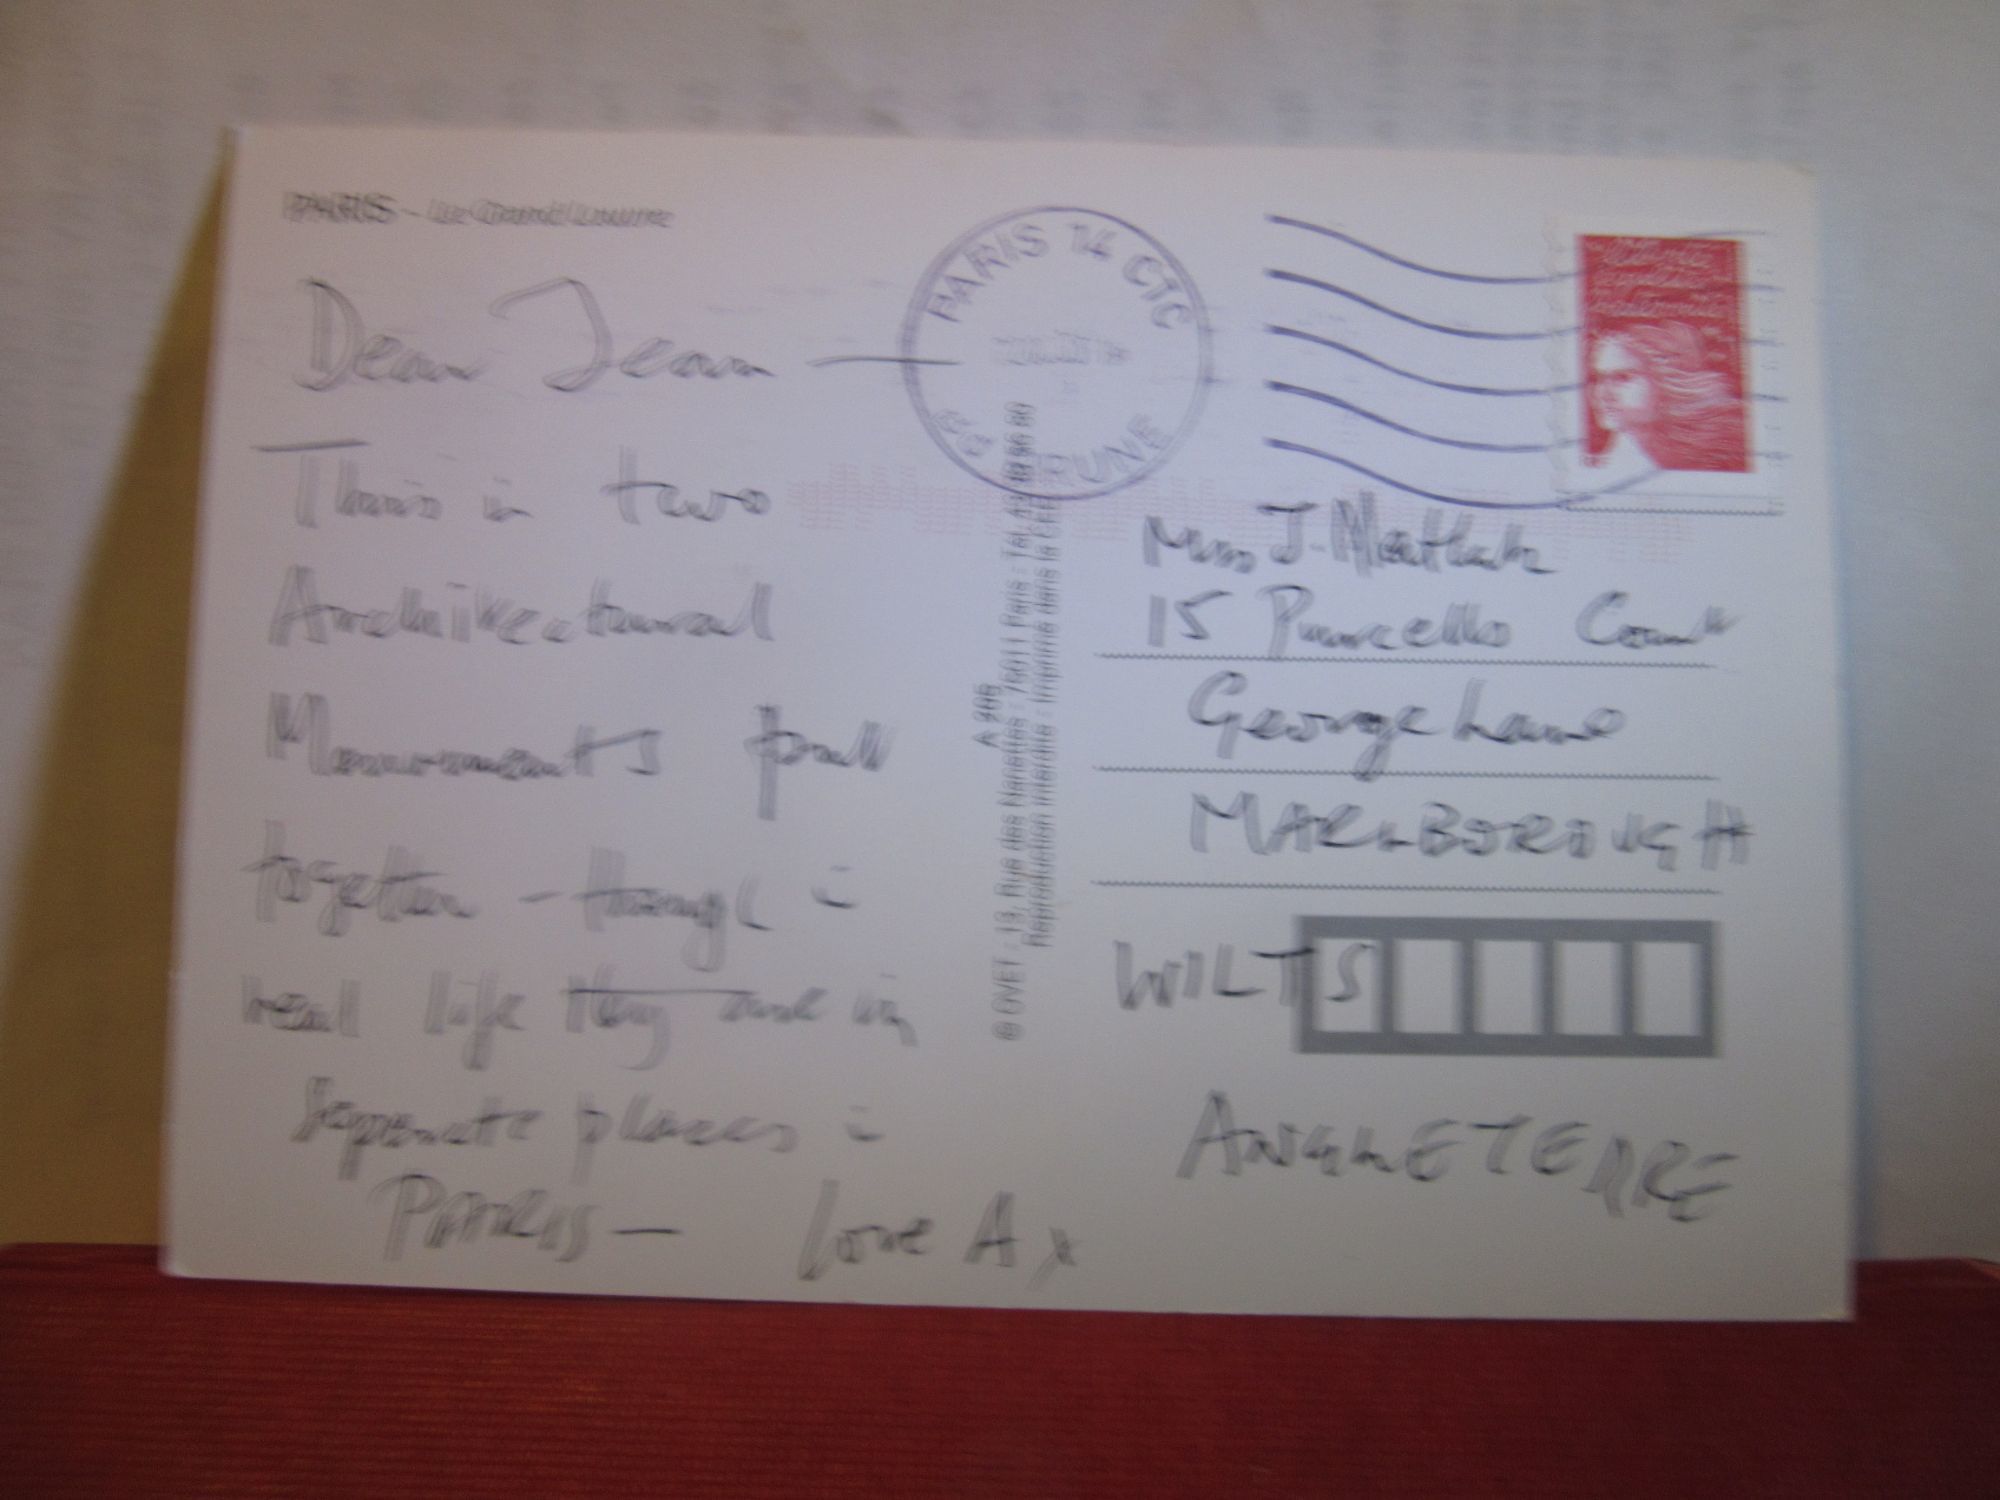 PARIS - Le Grand Louvre
Dear Jean —
This is two
Architectural
Monuments put
together - though in
real life they are in
separate places in
PARIS — love A x
PARIS 14 CTC
BRUNE
A 206
© OVET : 13, Rue des Nanettes : 75011 Paris : Tél.
Reproduction interdite : Imprimé dans la CEE
Mrs J.
15 Purcells Court
George Lane
MARLBOROUGH
WILTS
ANGLETERRE